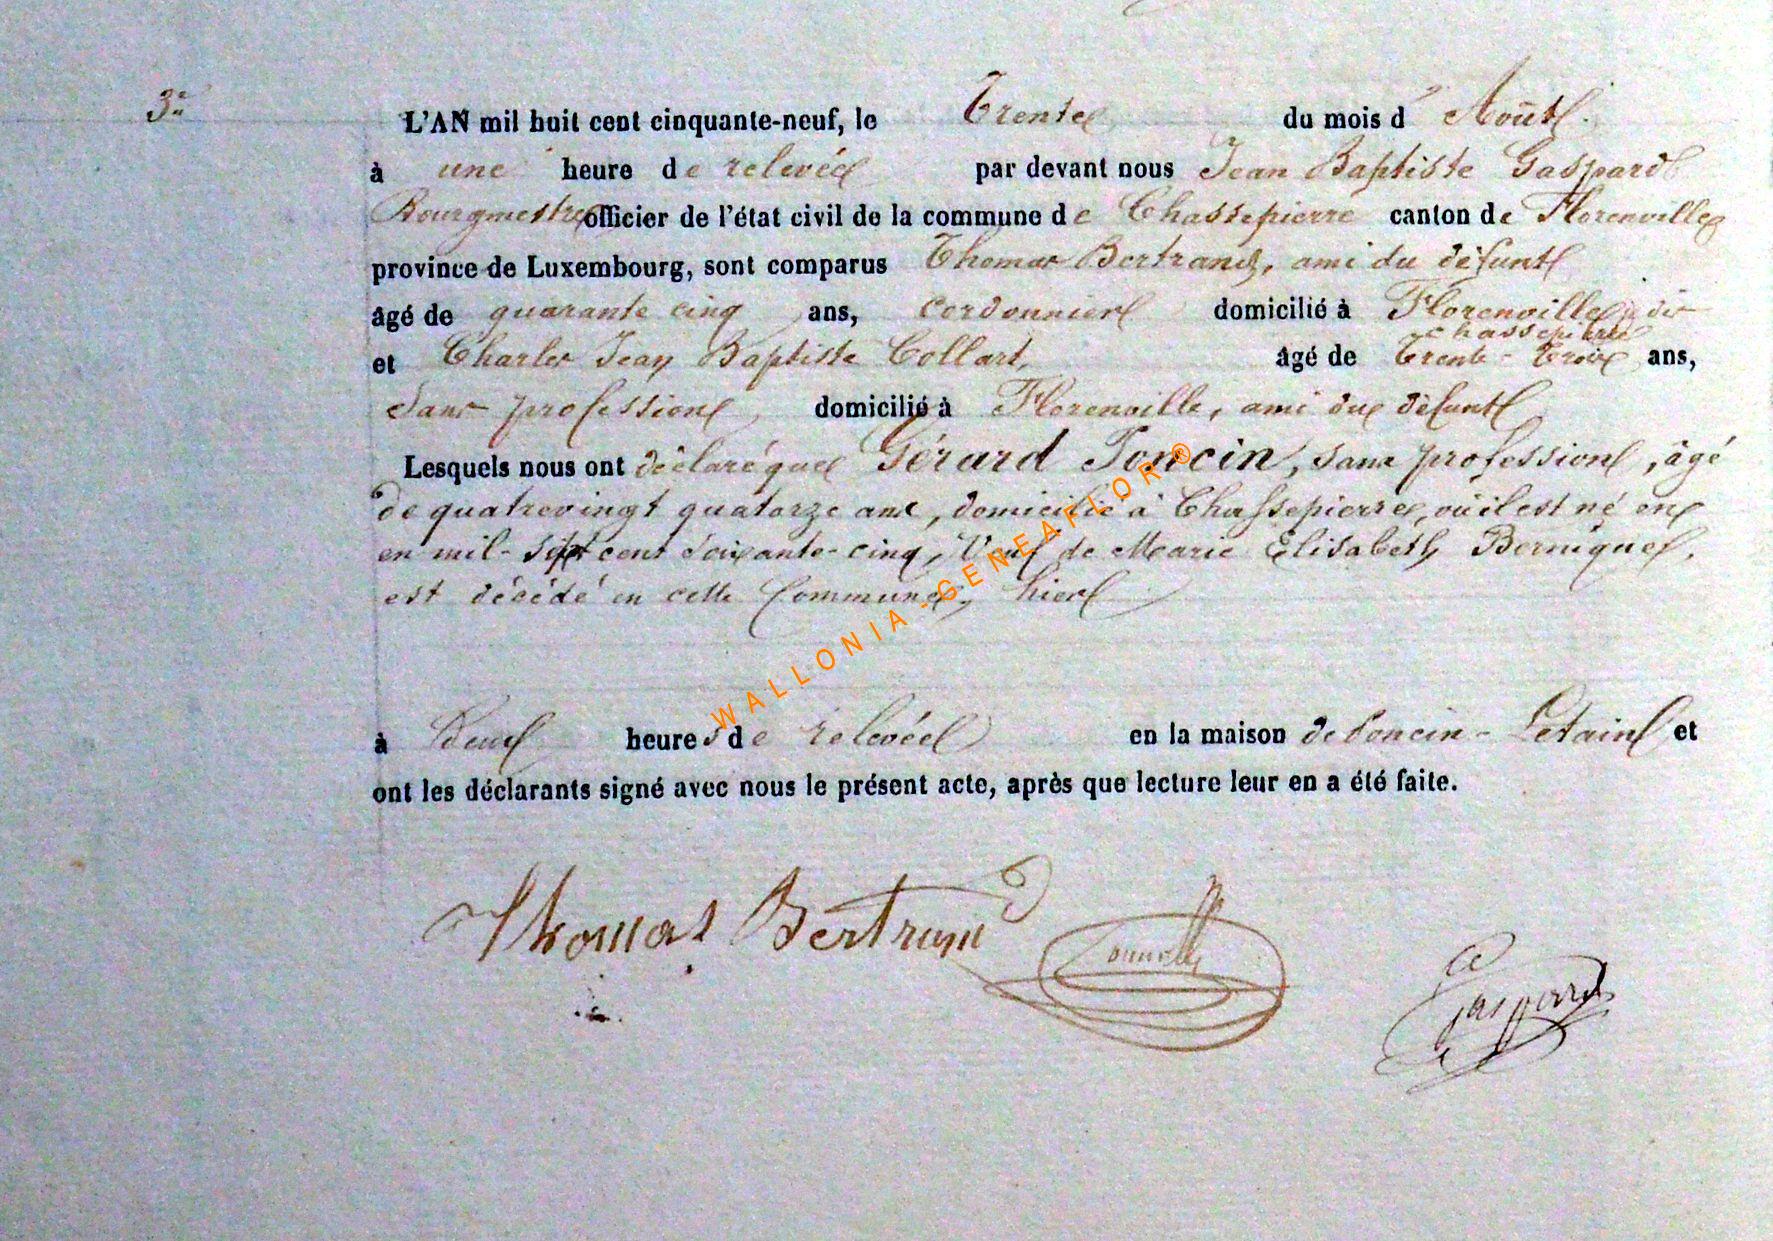 3e
L'AN mil huit cent cinquante-neuf, le Trente du mois d' Août.
à une heure de relevée par devant nous Jean Baptiste Gaspard
Bourgmestre officier de l'état civil de la commune de Chassepierre canton de Florenville
province de Luxembourg, sont comparus Thomas Bertrand, ami du défunt
âgé de quarante cinq ans, cordonnier domicilié à Florenville
chassepierre
et Charles Jean Baptiste Collart, âgé de trente-trois ans,
sans profession, domicilié à Florenville, ami du défunt
Lesquels nous ont déclaré que Gérard Poncin, sans profession, âgé
de quatrevingt quatorze ans, domicilié à Chassepierre, où il est né en
en mil-sept cent soixante-cinq, Veuf de Marie Elisabeth Berniquel,
est décédé en cette Commune, hier
à Deux heures de relevée en la maison de Poncin-Letain et
ont les déclarants signé avec nous le présent acte, après que lecture leur en a été faite.
Thomas Bertrand
Gaspard
WALLONIA-GENEAFLOR®